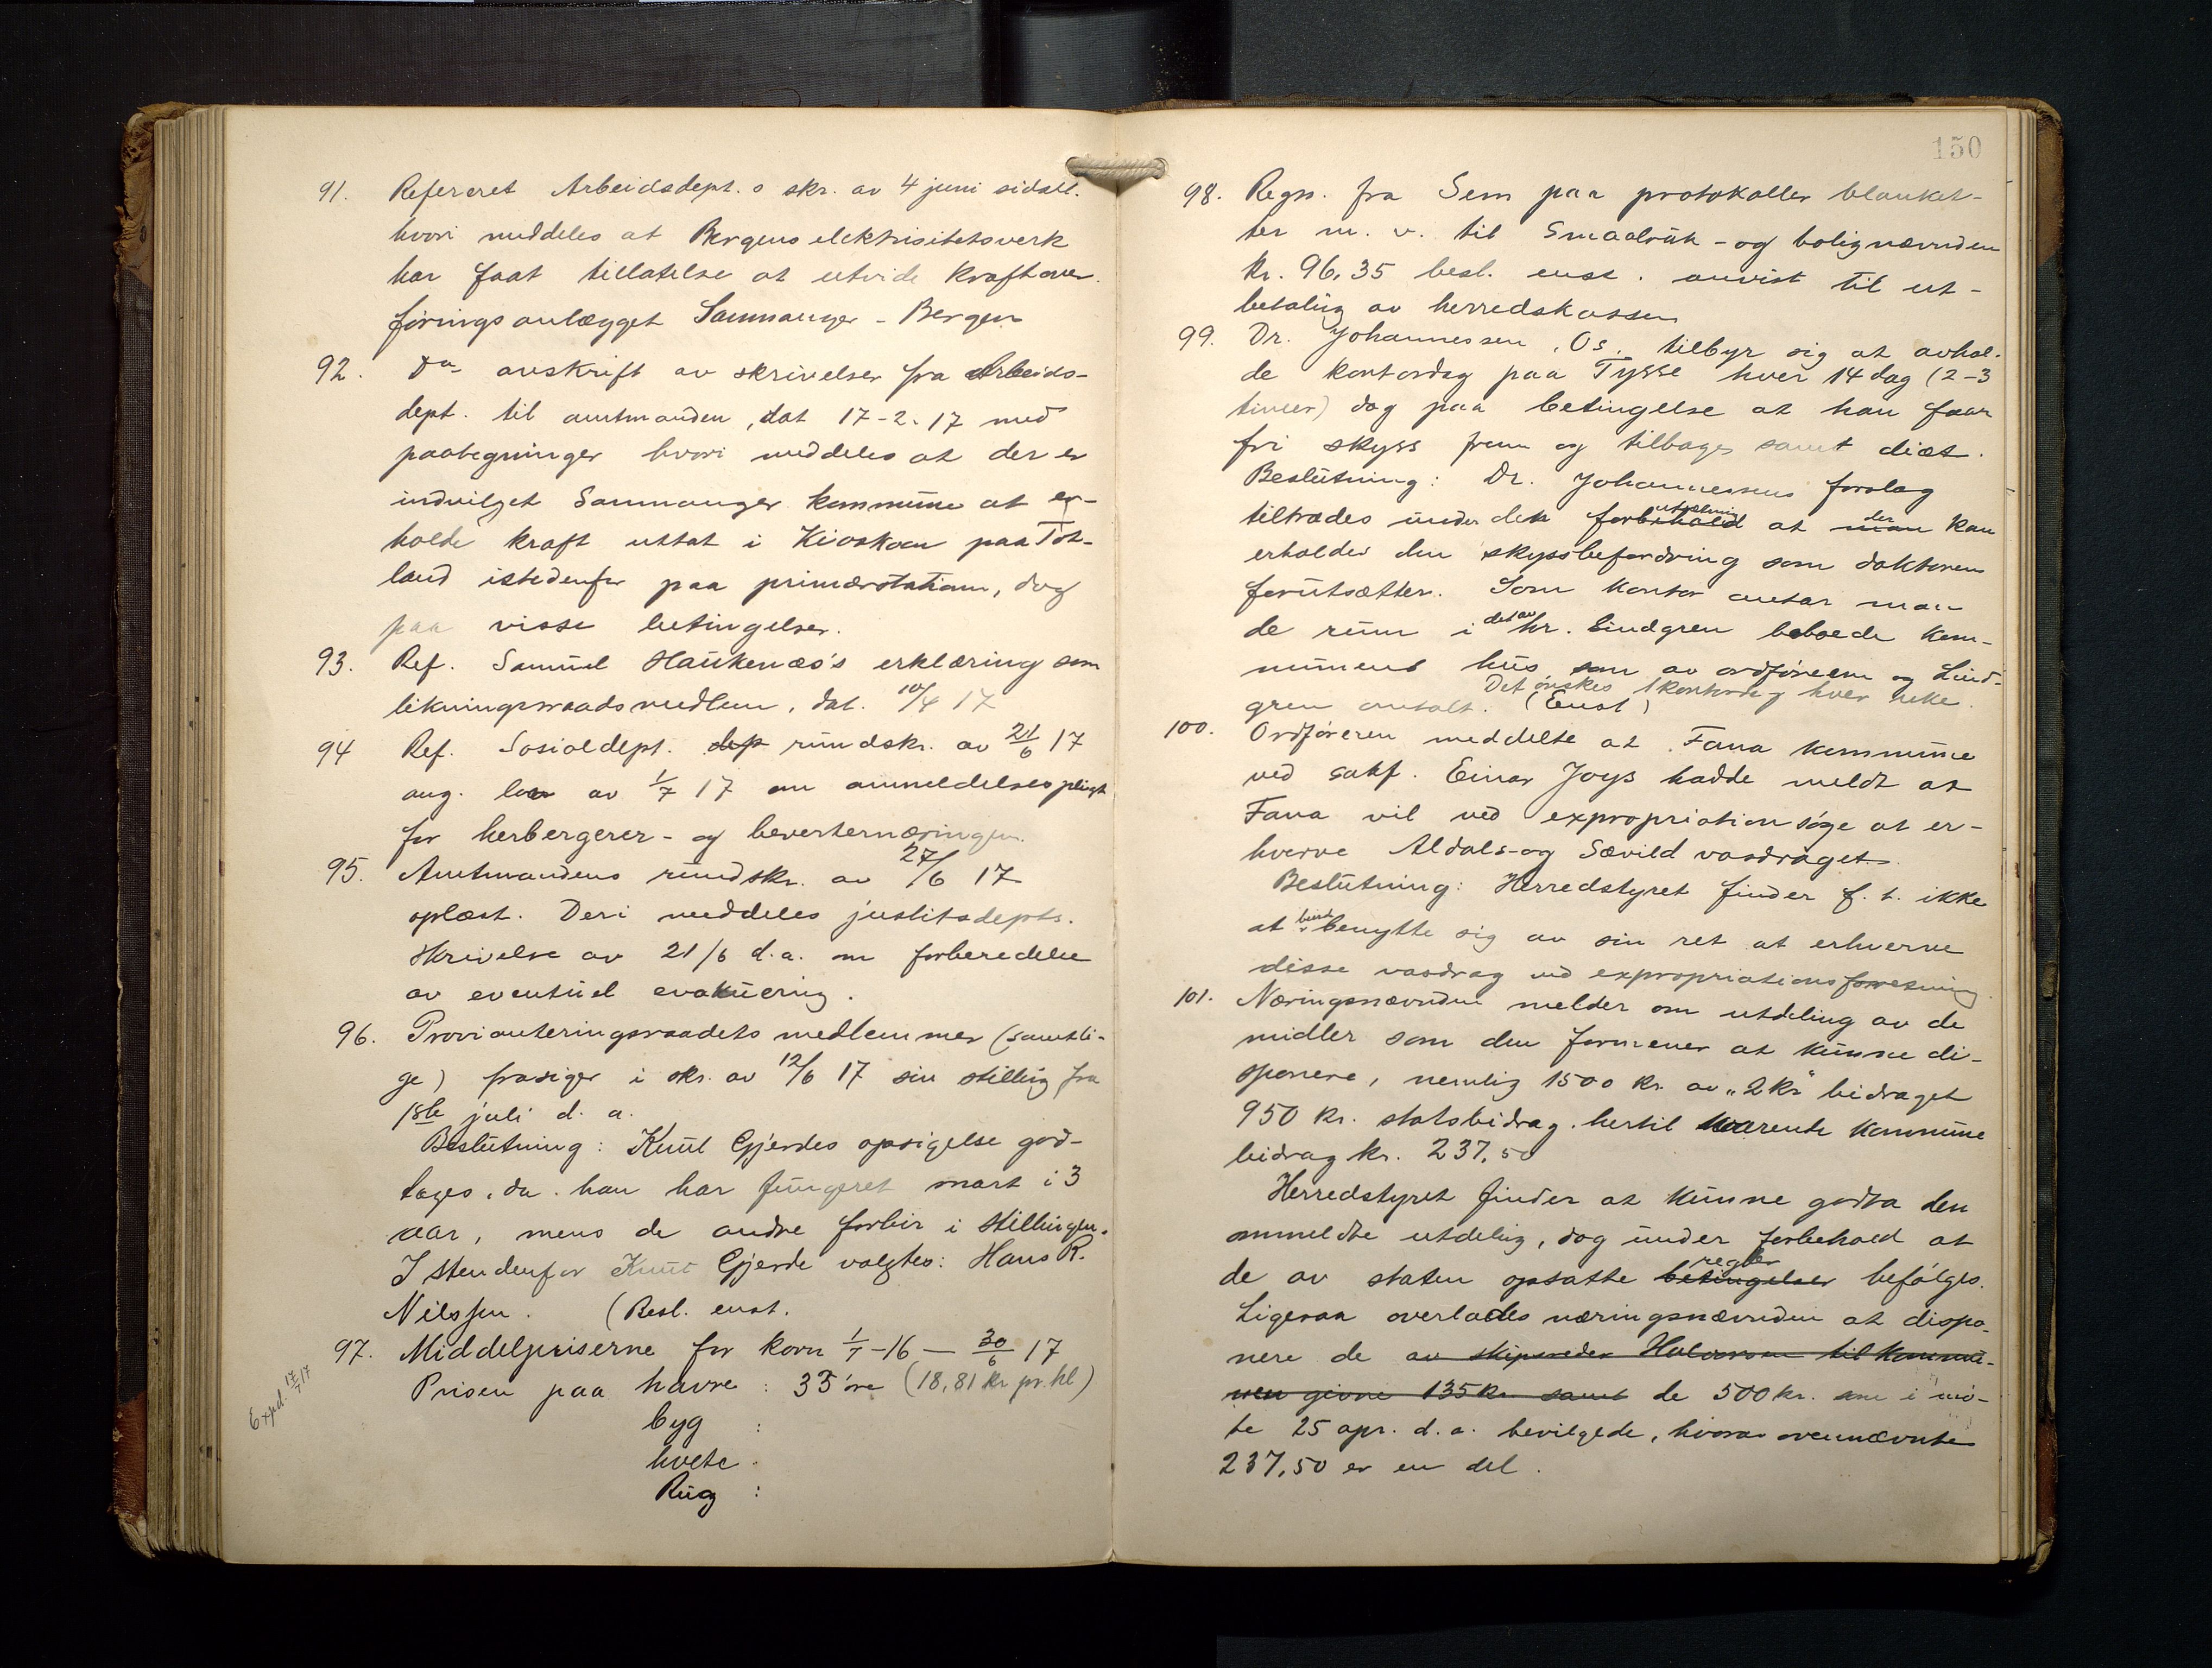 91. Refereret Arbeidsdept.s skr. av 4 juni sidstl.
hvori meddeles at Bergens elektrisitetsverk
har faat tillatelse at utvide kraftover-
föringsanlægget Samnanger - Bergen
92. Do avskrift av skrivelser fra Arbeids-
dept. til amtmanden, dat 17-2-17 med
paategninger hvori meddeles at der er
indvilget Samnanger kommune at er-
holde kraft uttat i Kiosken paa Tot-
land istedenfor paa primærstationen, dog
paa visse betingelser.
93. Ref. Samuel Haukenæs's erklæring som
likningsraadsmedlem, dat. 10/4 17
94 Ref. Sosialdept. dep rundskr. av 21/6 17
ang. lov av 1/7 17 om anmeldelsespligt
for herbergerer- og beverternæringen.
95. Amtmandens rundskr. av 27/6 17
oplæst. Deri meddeles justitsdepts.
skrivelse av 21/6 d.a. om forberedelse
av eventuel evakuering.
96. Provianteringsraadets medlemmer (samtli-
ge) frasiger i skr. av 12/6 17 sin stilling fra
1ste juli d. a.
Beslutning: Knut Gjerdes opsigelse god-
tages, da han har fungeret snart i 3
aar, mens de andre forblir i stillingen.
Istendenfor Knut Gjerde valgtes: Hans R.
Nilssen. (Besl. enst.
97. Middelpriserne for korn 1/7-16 — 30/6 17
Prisen paa havre : 35 öre (18,81 kr pr. hl)
byg :
hvete :
Rug :
Exped. 17/7 17
150
98. Regn. fra Sem paa protokoller blanket-
ter m. v. til Smaabruk- og bolignævnden
kr. 96,35 besl. enst. anvist til ut-
betaling av herredskassen
99. Dr. Johannessen, Os, tilbyr sig at avhol-
de kontordag paa Tysse hver 14 dag (2-3
timer) dog paa betingelse at han faar
fri skyss frem og tilbage samt diæt.
Beslutning: Dr. Johannessens forslag
tiltrædes under den forbehold at man der kan
erholdes den skyssbefordring som doktoren
forutsætter. Som kontor antar man
de rum i det av hr. Lindgren beboede kom-
munens hus som av ordföreren og Lind-
gren antalt. (Enst) Det önskes 1 kontordag hver uke.
100. Ordföreren meddelte at Fana kommune
ved sakf. Einar Joys hadde meldt at
Fana vil ved expropriation söge at er-
hverve Aldals- og Sævild vasdraget.
Beslutning: Herredstyret finder f. t. ikke
at benytte sig av sin ret at erhverve
disse vasdrag ved expropriationsforretning.
101. Næringsnævnden melder om utdeling av de
midler som den formener at kunne di-
sponere, nemlig 1500 kr. av "2 kr" bidraget
950 kr. statsbidrag. hertil svarende kommune
bidrag kr. 237,50
Herredstyret finder at kunne godta den
ommeldte utdeling, dog under forbehold at
de av staten opsatte betingelser regler befölges.
Ligesaa overlades næringsnævnden at dispo-
nere de av skipsreder Halvorsen til kommu-
nen givne 135 kr. samt de 500 kr. som i mö-
te 25 apr. d. a. bevilgede, hvorav ovennævnte
237,50 er en del.